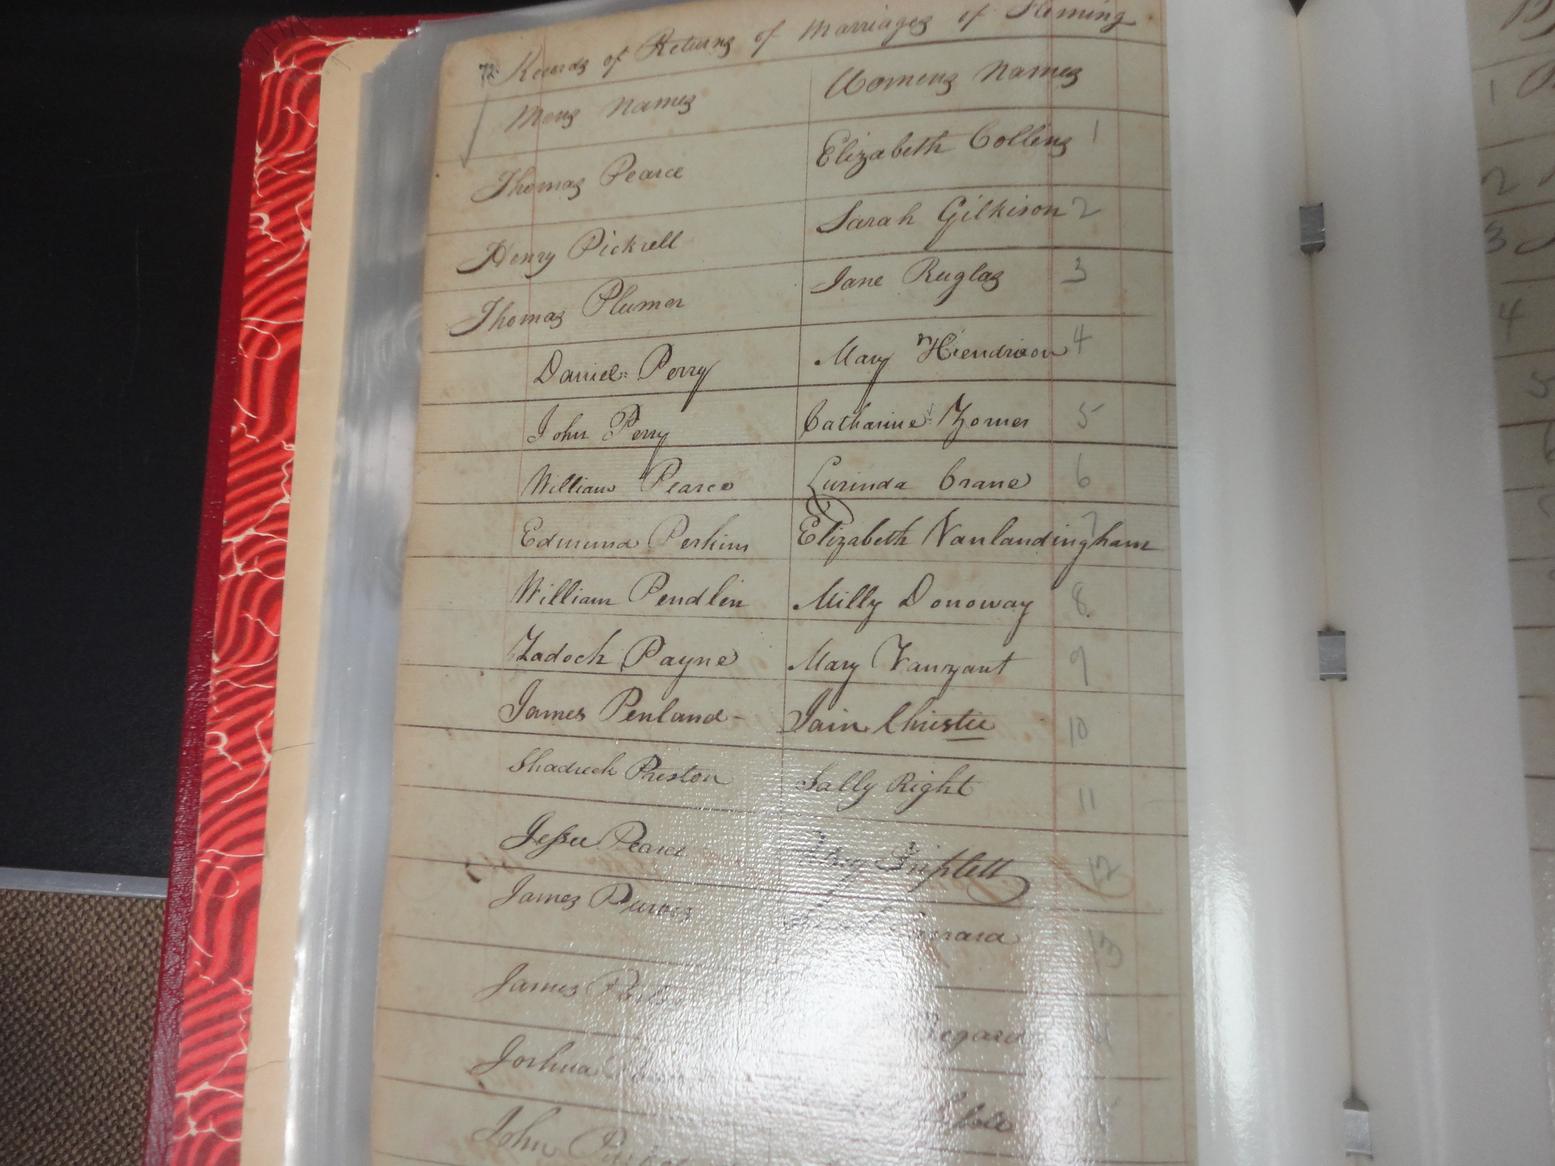 72 Records of Returns of Marriages of Fleming
Mens Names Womens Names
Thomas Pearce Elizabeth Collins 1
Henry Pickrell Sarah Gilkison 2
Thomas Plumer Jane Ruglas 3
Daniel Perry Mary Hendrixon 4
John Perry Catharine Zomes 5
William Pearce Lurinda Crane 6
Edmund Perkins Elizabeth Vanlandingham 7
William Pendlin Milly Donoway 8
Zadock Payne Mary Vanzant 9
James Penland Jain Christie 10
Shadrech Preston Sally Right 11
Jessee Pearce Triplett 12
James Purves 13
James
Joshua
John
1
2
3
4
5